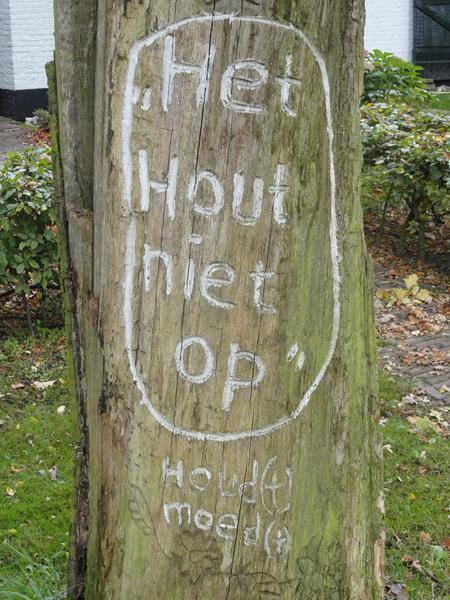 „Het
Hout
niet
op”
Houd(t)
moed(t)